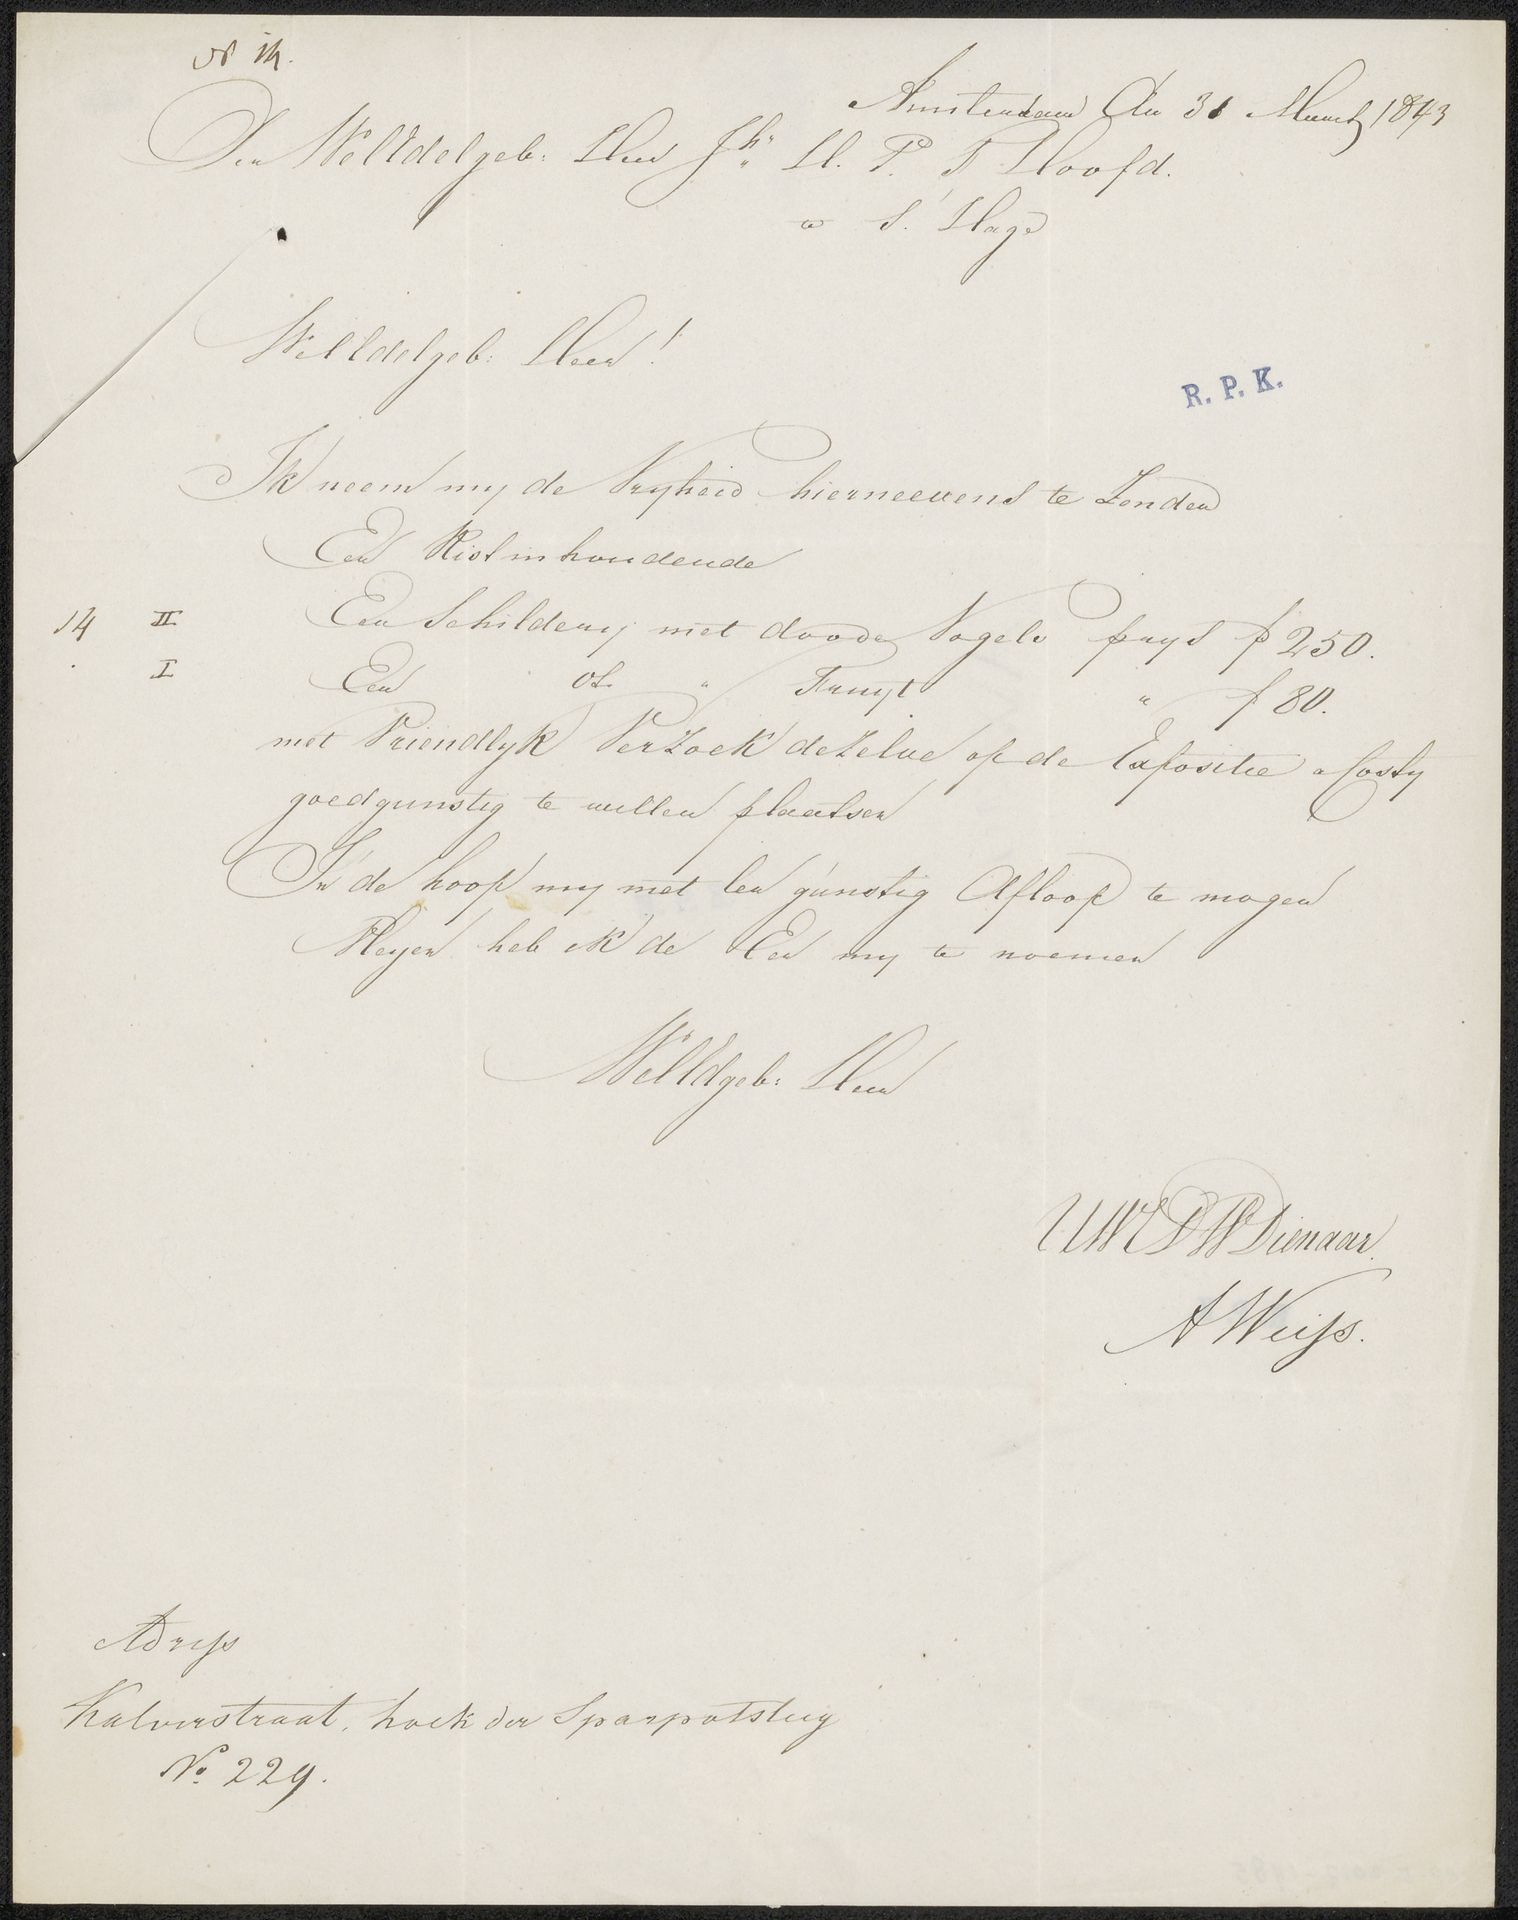 N 14.
Amsterdam den 31 Maart 1843
Den WelEdelgeb: Heer Jhr H. P. T. Hoofd.
te S'. Hage
WelEdelgeb: Heer!
R. P. K.
Ik neem my de Vryheid hierneevens te Zenden
Een Kist inhoudende
14 II Een Schildery met doode Vogels prys f 250.
I Een do. " Fruyt " f 80.
met Vriendlyk Verzoek dezelve op de Expositie a Costy
goedgunstig te willen plaatsen
In de hoop my met een gunstig Afloop te mogen
Vleyen heb ik de Eer my te noemen
WelEdgeb: Heer
UWEDW Dienaar.
A Weiss.
Adress
Kalverstraat, hoek der Spaarpotsteeg
No. 229.